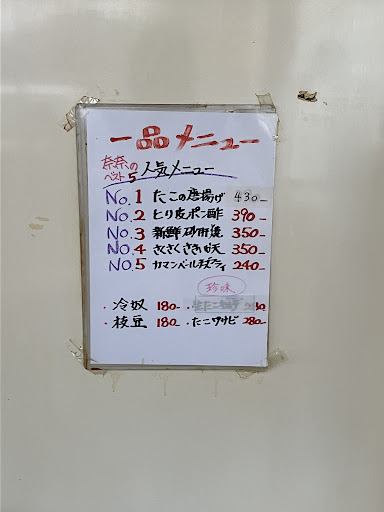 一品メニュー
奈奈の
ベスト5 人気メニュー
No.1 たこの唐揚げ 430-
No.2 とり皮ポン酢 390-
No.3 新鮮砂肝焼 350-
No.4 さくさくきす天 350-
No.5 カマンベールチーズフライ 240-
珍味
・冷奴 180-
・枝豆 180- ・たこワサビ 280-